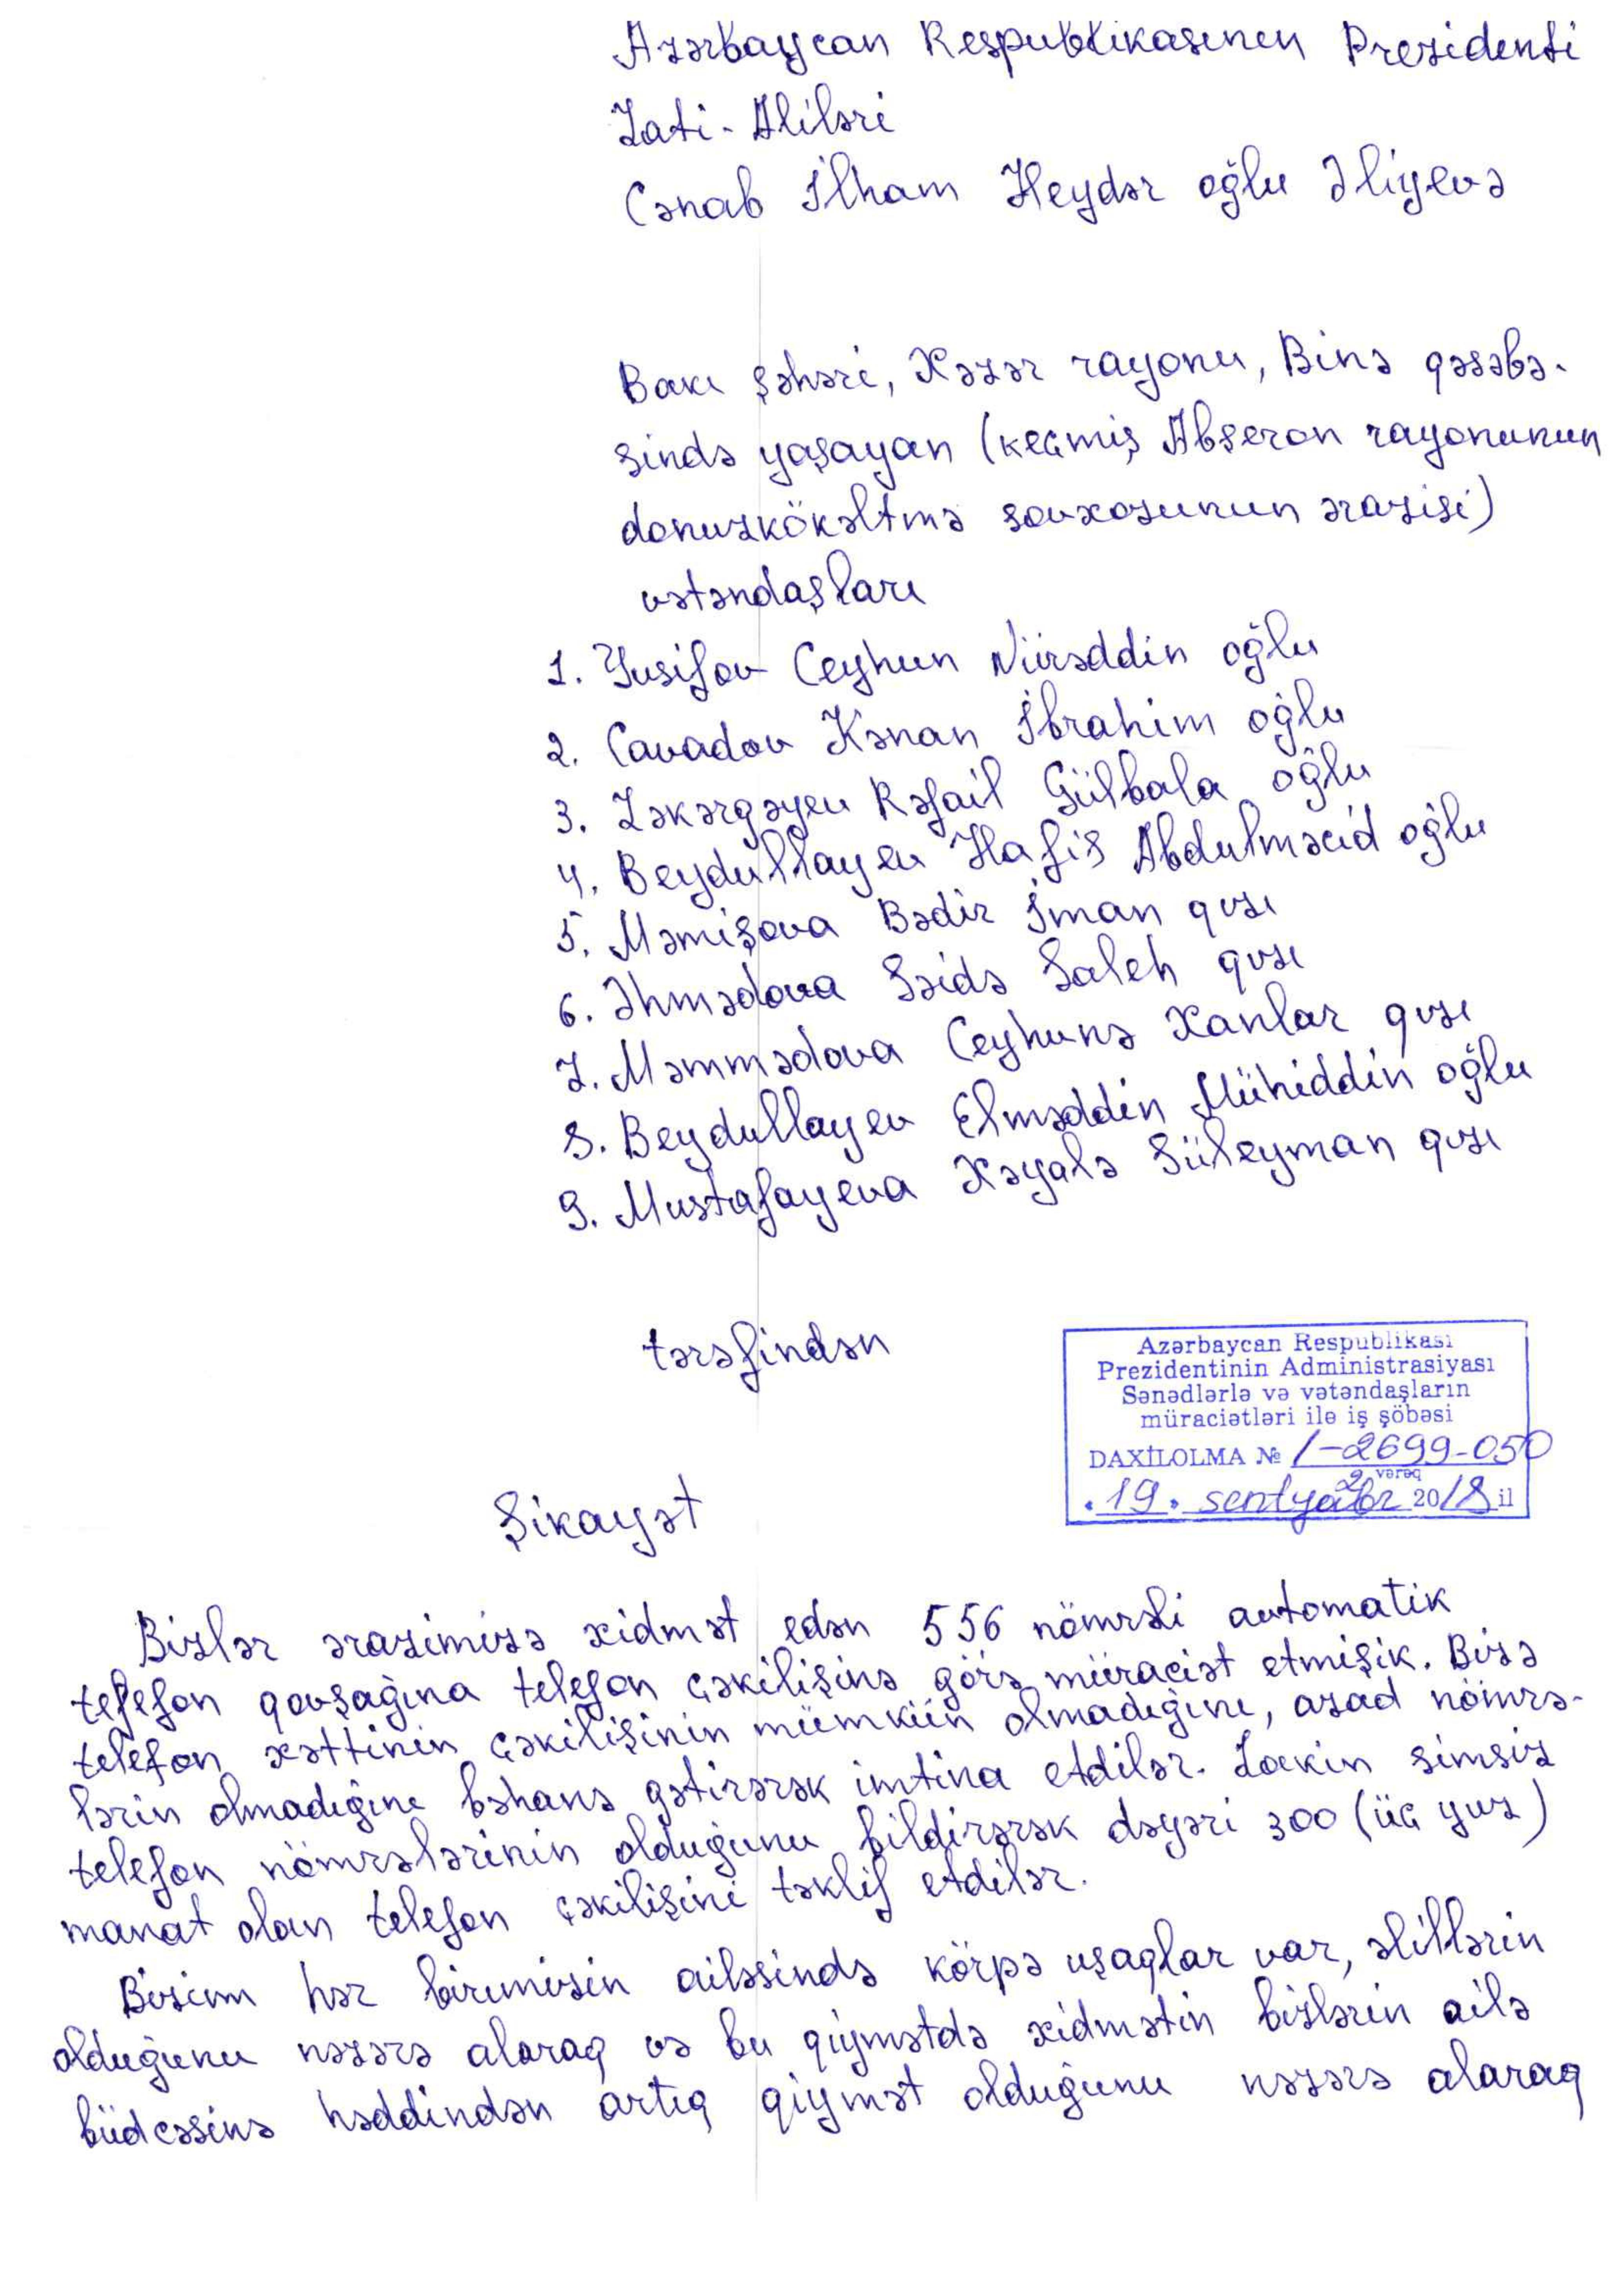 Azərbaycan Respublikasının Prezidenti
Zati-Aliləri
Cənab İlham Heydər oğlu Əliyevə
Bakı şəhəri, Xəzər rayonu, Binə qəsəbə-
sində yaşayan (keçmiş Abşeron rayonunun
donuzkökəltmə sovxozunun ərazisi)
vətəndaşları
1. Yusifov Ceyhun Nürəddin oğlu
2. Cavadov Kənan İbrahim oğlu
3. Zəkərqəyev Rəfail Gülbala oğlu
4. Beydullayev Hafis Abdulməcid oğlu
5. Məmişova Bədir İman qızı
6. Əhmədova Səidə Saleh qızı
7. Məmmədova Ceyhunə Xanlar qızı
8. Beydullayev Elməddin Mühiddin oğlu
9. Mustafayeva Xəyalə Süleyman qızı
tərəfindən
Azərbaycan Respublikası
Prezidentinin Administrasiyası
Sənədlərlə və vətəndaşların
müraciətləri ilə iş şöbəsi
DAXİLOLMA № 1-2699-050
2 vərəq
«19» sentyabr 2018 il
Şikayət
Bizlər ərazimizə xidmət edən 556 nömrəli avtomatik
telefon qovşağına telefon çəkilişinə görə müraciət etmişik. Bizə
telefon xəttinin çəkilişinin mümkün olmadığını, azad nömrə-
lərin olmadığını bəhanə gətirərək imtina etdilər. Lakin simsiz
telefon nömrələrinin olduğunu bildirərək dəyəri 300 (üç yuz)
manat olan telefon çəkilişini təklif etdilər.
Bizim hər birimizin ailəsində körpə uşaqlar var, əlillərin
olduğunu nəzərə alaraq və bu qiymətdə xidmətin bizlərin ailə
büdcəsinə həddindən artıq qiymət olduğunu nəzərə alaraq